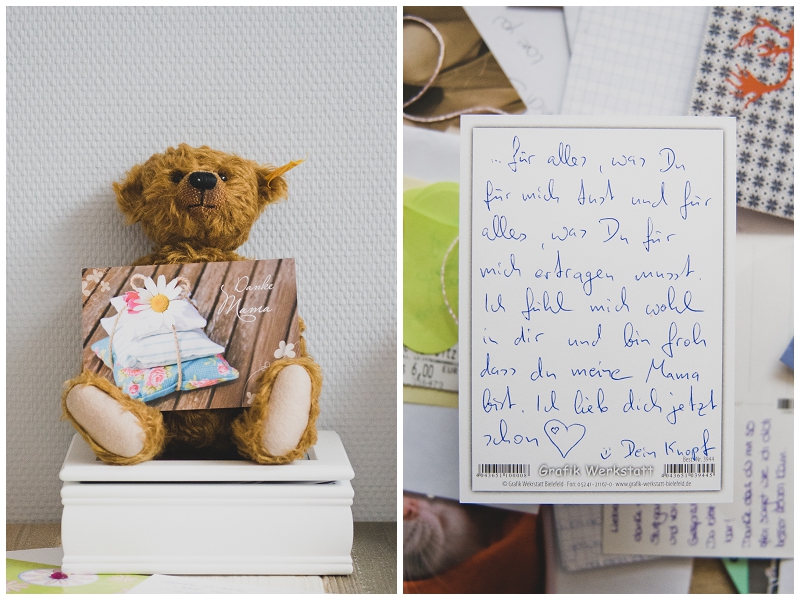 Danke
Mama
Love you
... für alles, was Du
für mich tust und für
alles, was Du für
mich ertragen musst.
Ich fühl mich wohl
in dir und bin froh
dass du meine Mama
bist. Ich lieb dich jetzt
schon
Dein Knopf
Best.-Nr. 3944
Grafik Werkstatt
© Grafik Werkstatt Bielefeld · Fon: 0 52 41 - 21167-0 · www.grafik-werkstatt-bielefeld.de
6,00 EUR